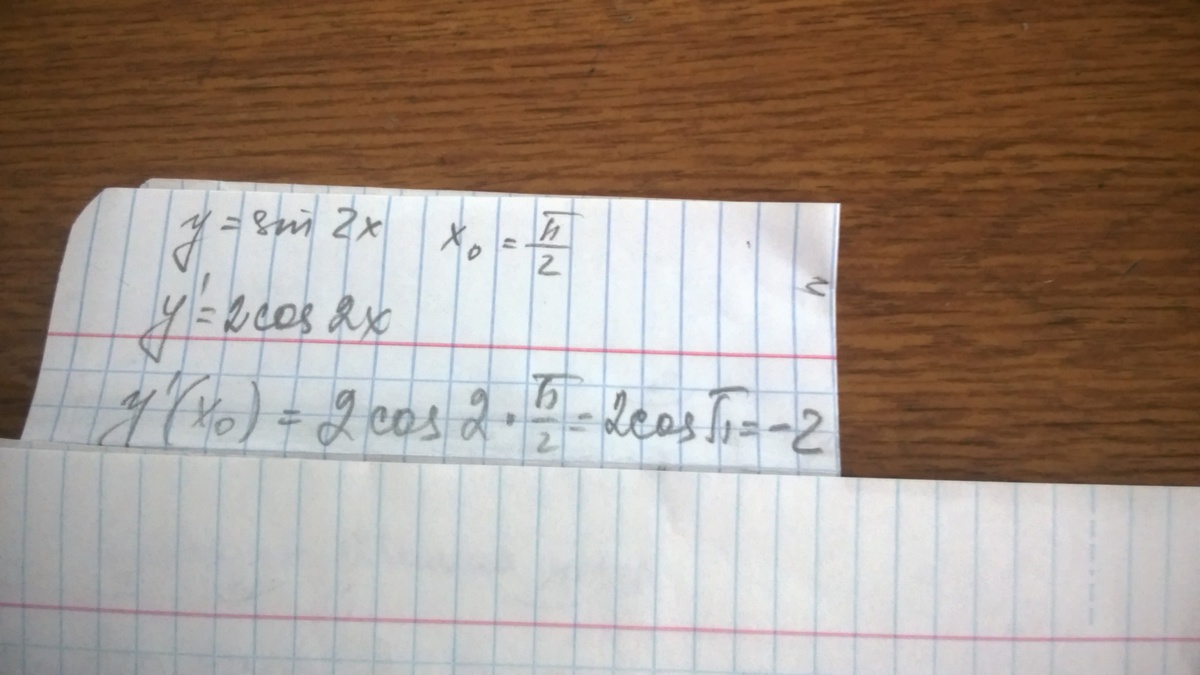 y = sin 2x x₀ = π/2
y' = 2cos 2x
y'(x₀) = 2 cos 2 · π/2 = 2cos π = -2